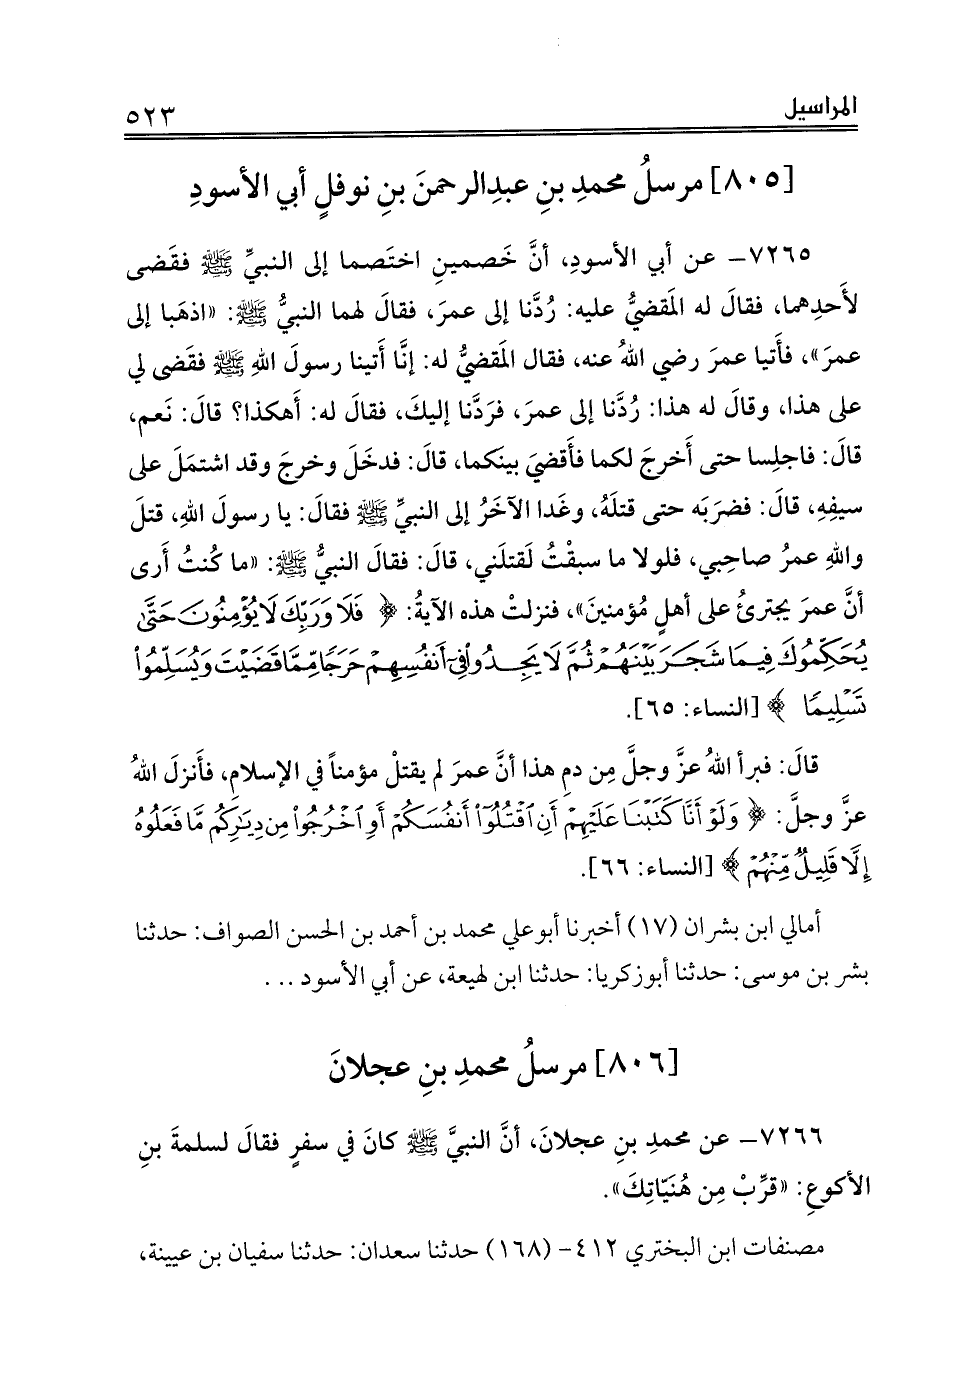 المراسيل ٥٢٣
[٨٠٥] مرسلُ محمدِ بنِ عبدِالرحمنَ بنِ نوفلٍ أبي الأسودِ
٧٢٦٥- عن أبي الأسودِ، أنَّ خَصمينِ اختَصما إلى النبيِّ ﷺ فقَضى
لأَحدِهما، فقالَ له المَقضيُّ عليه: رُدَّنا إلى عمرَ، فقالَ لهما النبيُّ ﷺ: «اذهَبا إلى
عمرَ»، فأَتيا عمرَ رضي اللهُ عنه، فقال المَقضيُّ له: إنَّا أَتينا رسولَ اللهِ ﷺ فقَضى لي
على هذا، وقالَ له هذا: رُدَّنا إلى عمرَ، فرَدَّنا إليكَ، فقالَ له: أَهكذا؟ قالَ: نَعم،
قالَ: فاجلِسا حتى أَخرجَ لكما فأَقضيَ بينَكما، قالَ: فدخَلَ وخرجَ وقد اشتمَلَ على
سيفِهِ، قالَ: فضرَبَه حتى قتلَهُ، وغَدا الآخَرُ إلى النبيِّ ﷺ فقالَ: يا رسولَ اللهِ، قتلَ
واللهِ عمرُ صاحِبي، فلولا ما سبقْتُ لَقتلَني، قالَ: فقالَ النبيُّ ﷺ: «ما كُنتُ أَرى
أنَّ عمرَ يجترئُ على أهلٍ مُؤمنينَ»، فنزلتْ هذه الآيةُ: ﴿ فَلَا وَرَبِّكَ لَا يُؤْمِنُونَ حَتَّىٰ
يُحَكِّمُوكَ فِيمَا شَجَرَ بَيْنَهُمْ ثُمَّ لَا يَجِدُواْ فِىٓ أَنفُسِهِمْ حَرَجًا مِّمَّا قَضَيْتَ وَيُسَلِّمُواْ
تَسْلِيمًا ﴾ [النساء: ٦٥].
قالَ: فبرأَ اللهُ عزَّ وجلَّ مِن دمِ هذا أنَّ عمرَ لم يقتلْ مؤمناً في الإسلامِ، فأَنزلَ اللهُ
عزَّ وجلَّ: ﴿ وَلَوْ أَنَّا كَتَبْنَا عَلَيْهِمْ أَنِ ٱقْتُلُوٓاْ أَنفُسَكُمْ أَوِ ٱخْرُجُواْ مِن دِيَـٰرِكُم مَّا فَعَلُوهُ
إِلَّا قَلِيلٌ مِّنْهُمْ ﴾ [النساء: ٦٦].
أمالي ابن بشران (١٧) أخبرنا أبوعلي محمد بن أحمد بن الحسن الصواف: حدثنا
بشر بن موسى: حدثنا أبوزكريا: حدثنا ابن لهيعة، عن أبي الأسود ...
[٨٠٦] مرسلُ محمدِ بنِ عجلانَ
٧٢٦٦- عن محمدِ بنِ عجلانَ، أنَّ النبيَّ ﷺ كانَ في سفرٍ فقالَ لسلمةَ بنِ
الأكوعِ: «قرِّبْ مِن هُنَيّاتِكَ».
مصنفات ابن البختري ٤١٢- (١٦٨) حدثنا سعدان: حدثنا سفيان بن عيينة،